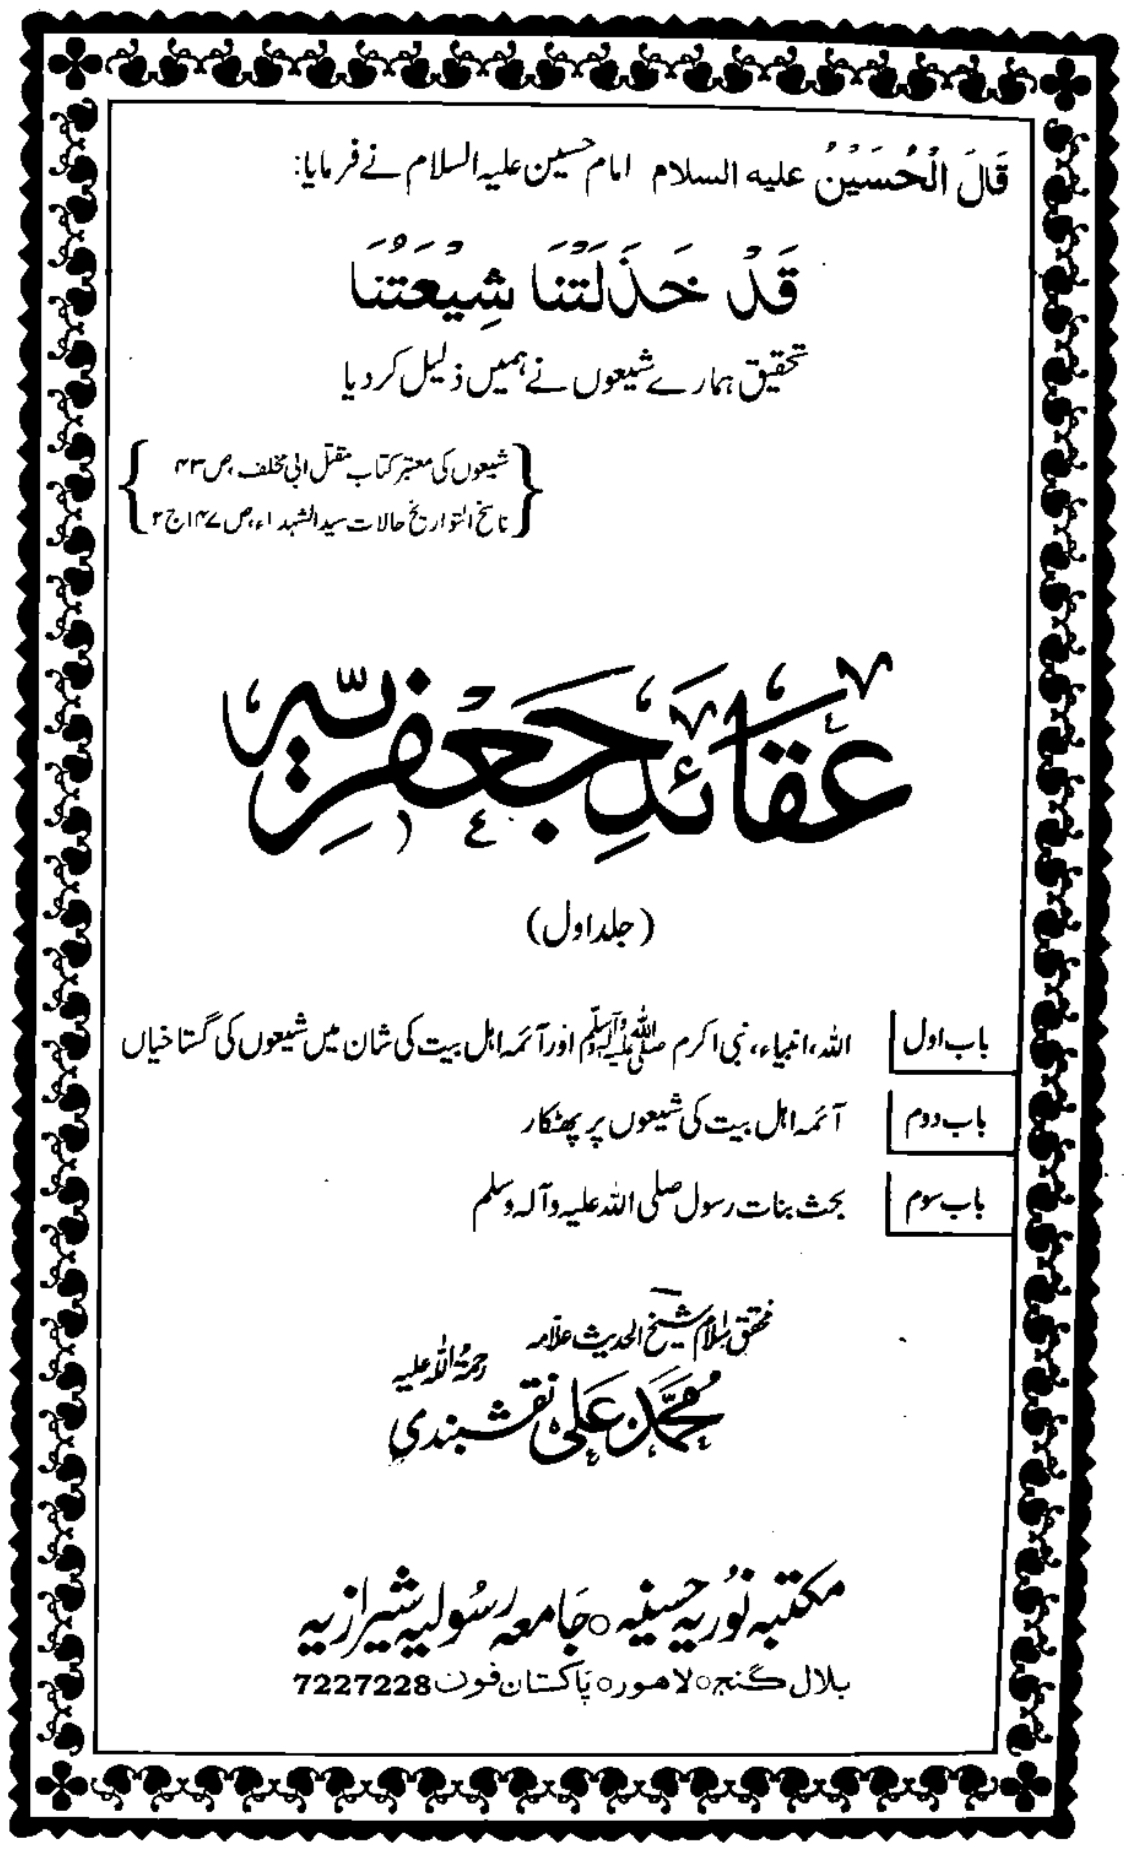 قَالَ الْحُسَيْنُ علیه السلام امام حسین علیہ السلام نے فرمایا:
قَدْ خَذَلَتْنَا شِيْعَتُنَا
تحقیق ہمارے شیعوں نے ہمیں ذلیل کر دیا
شیعوں کی معتبر کتاب مقتل ابی مخلف، ص ۴۳
ناسخ التواریخ حالات سید الشہداء، ص ۱۴۷ ج ۲
عقائدِ جعفریہ
(جلد اول)
باب اول اللہ، انبیاء، نبی اکرم ﷺ اور آئمہ اہل بیت کی شان میں شیعوں کی گستاخیاں
باب دوم آئمہ اہل بیت کی شیعوں پر پھٹکار
باب سوم بحث بنات رسول صلی اللہ علیہ وآلہ وسلم
محقق اسلام شیخ الحدیث علامہ
محمد علی نقشبندی رحمۃ اللہ علیہ
مکتبہ نوریہ حسینیہ ○ جامعہ رسولیہ شیرازیہ
بلال گنج ○ لاہور ○ پاکستان فون 7227228